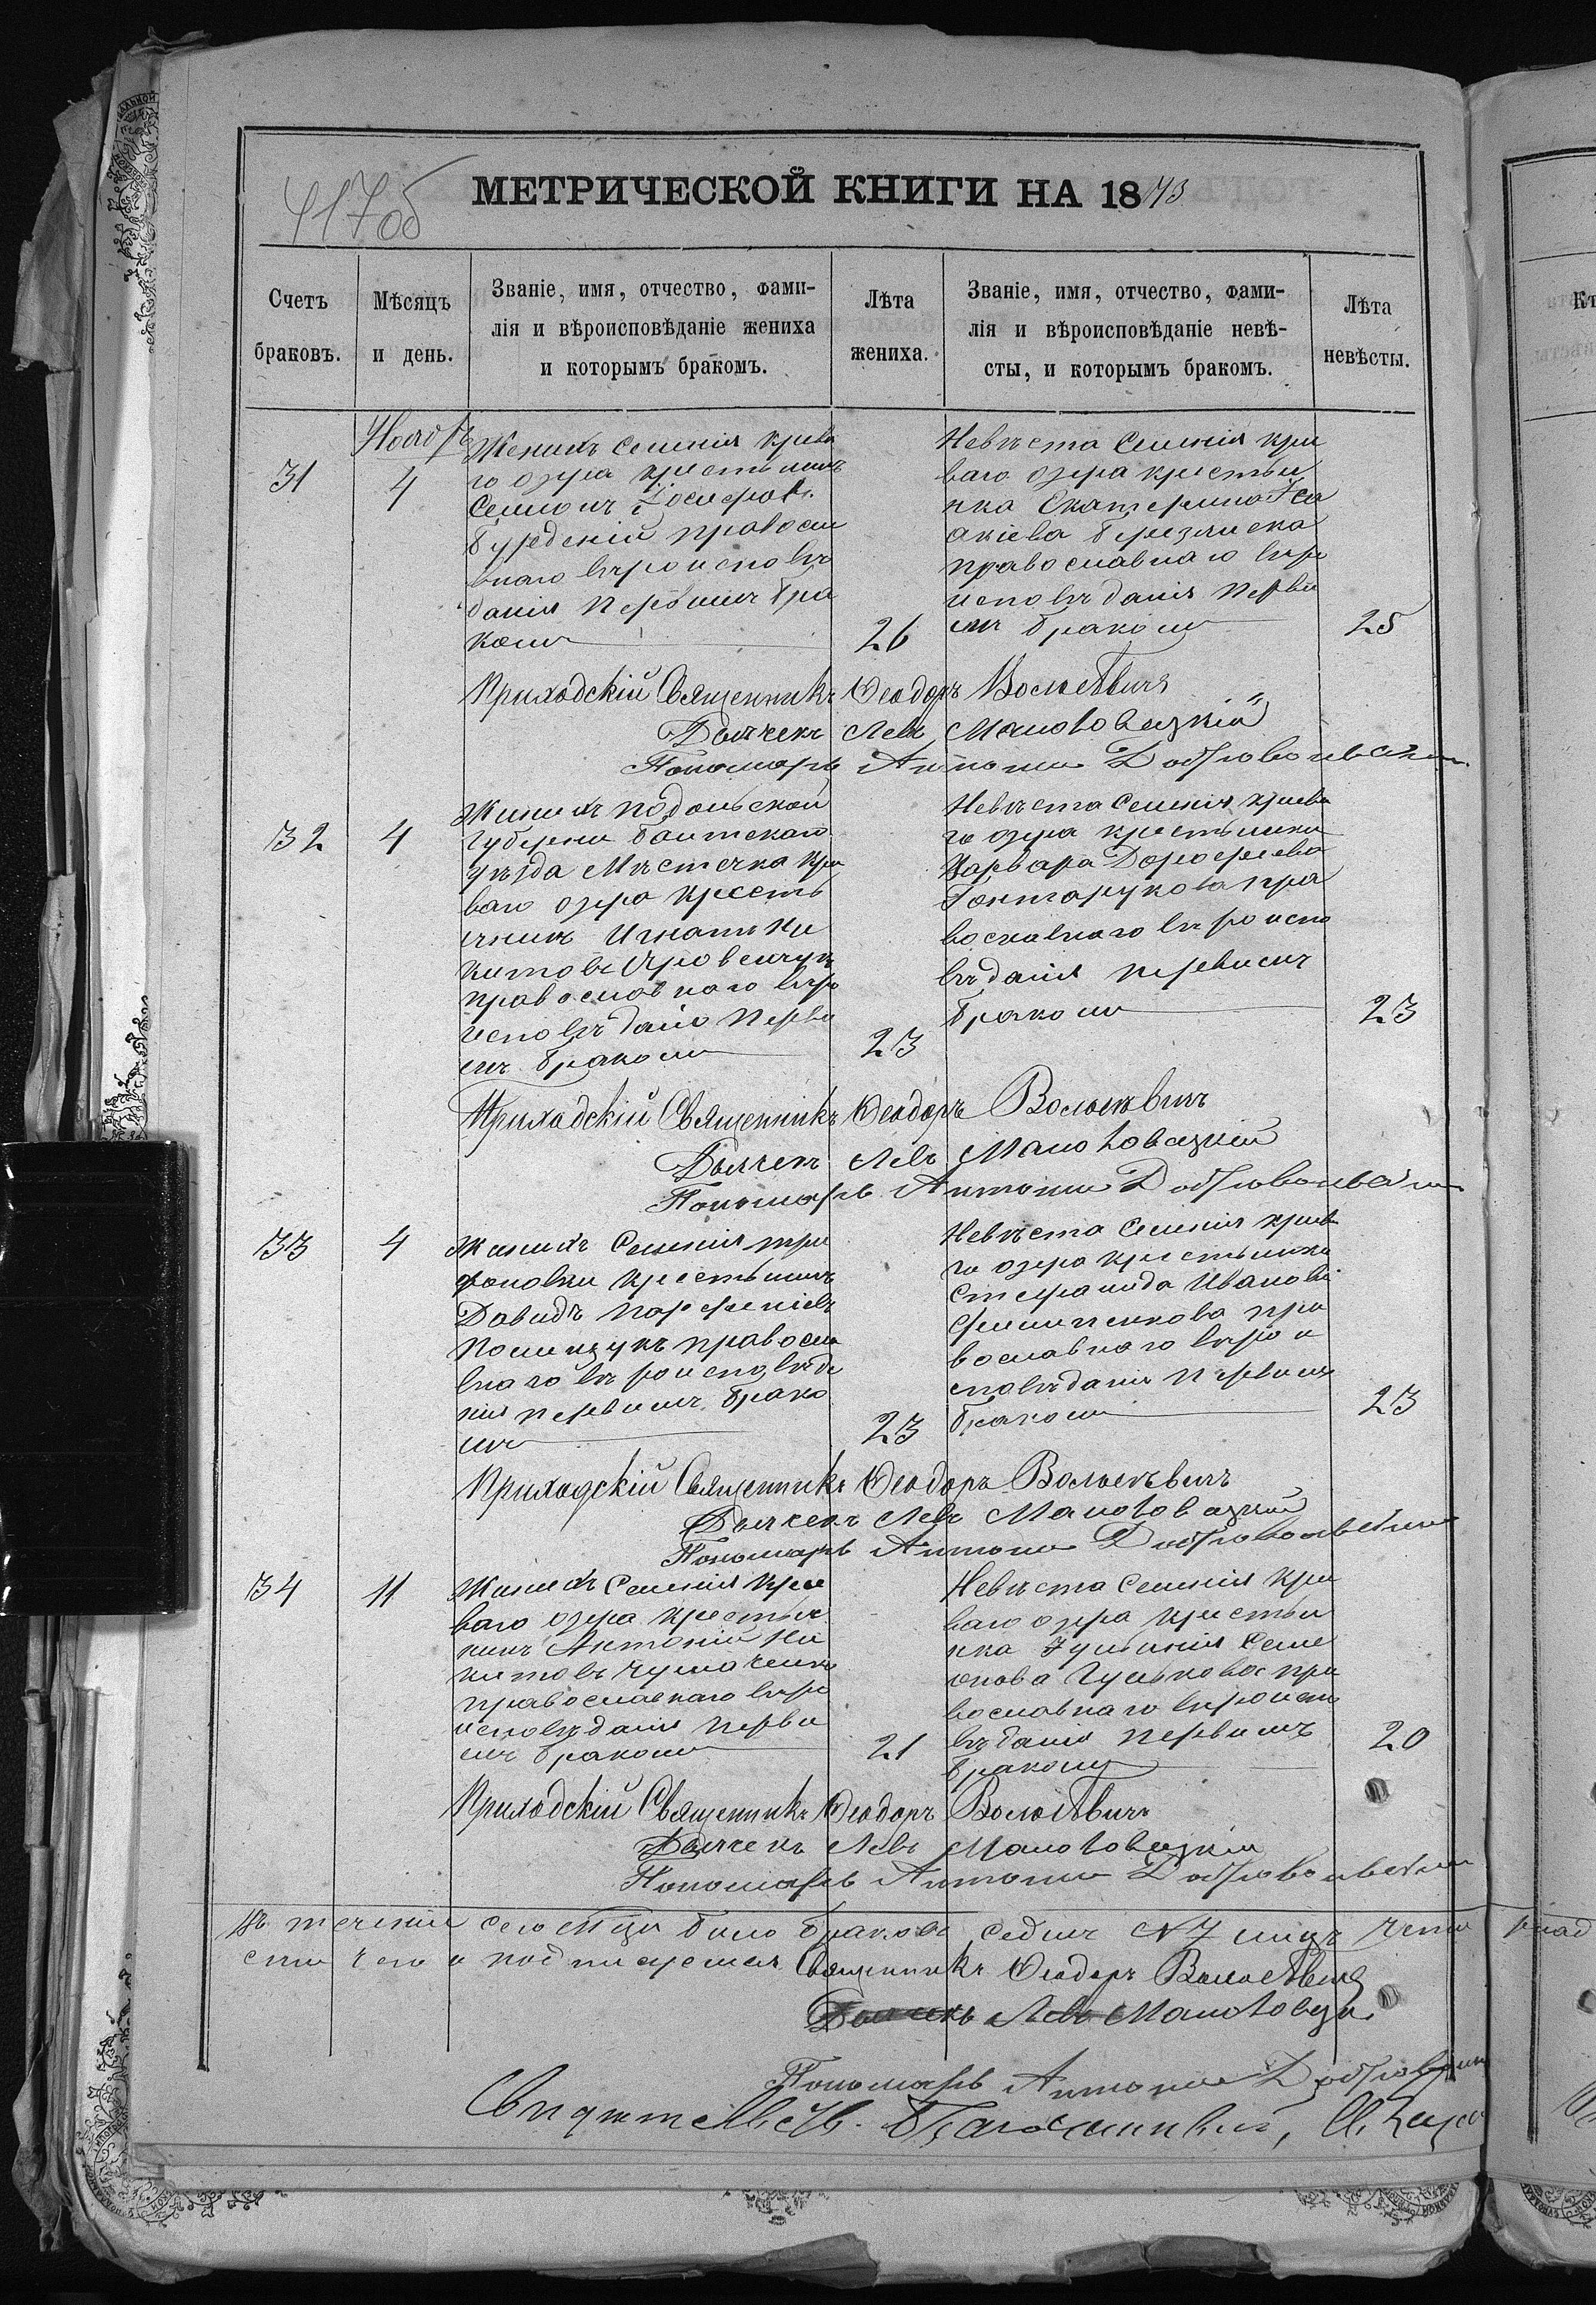 417об
МЕТРИЧЕСКОЙ КНИГИ НА 1873
Счетъ браковъ.
Мѣсяцъ и день.
Званіе, имя, отчество, фами-
лія и вѣроисповѣданіе жениха
и которымъ бракомъ.
Лѣта жениха.
Званіе, имя, отчество, фами-
лія и вѣроисповѣданіе невѣ-
сты, и которымъ бракомъ.
Лѣта невѣсты.
Ноябрь
31
4
Женихъ селенія криво
го озера крестьянинъ
Семионъ
православ
внаго вѣроисповѣ
данія первимъ бра
комъ
26
Невѣста Селенія кри
ваго озера крестья
нка Екатерина Іса
акіева
православнаго вѣро
исповѣданія перви
мъ бракомъ
25
Приходскій Священникъ Ѳеодоръ
Дьячекъ Левъ
Пономарь Антоній
32
4
Женихъ подольской
губерни балтскаго
уѣзда Мѣстечка кри
ваго озера кресть
янинъ Игнатъ Ни
китовъ
православнаго вѣро
исповѣданія перви
мъ бракомъ
23
Невѣста Селенія криво
го озера крестьянка
Варвара Дорофеева
Гонтарукова пра
вославнаго вѣроиспо
вѣданія первимъ
бракомъ
23
Приходскій Священникъ Ѳеодоръ
Дьячекъ Левъ
Пономарь Антоній
33
4
Женихъ Селенія три
фоновки крестьянинъ
Давидъ Парфеніевъ
Полищукъ правосла
внаго вѣроисповѣда
нія первимъ брако
мъ
23
Невѣста Селенія криво
го озера крестьянка
Стефанида Иванова
Филипенкова пра
вославнаго вѣрои
сповѣданія первимъ
бракомъ
23
Приходскій Священникъ Ѳеодоръ
Дьячекъ Левъ
Пономарь Антоній
34
11
Женихъ Селенія кри
ваго озера крестья
нинъ Антоній Ни
китовъ Чумаченко
православнаго вѣро
исповѣданія перви
мъ бракомъ
21
Невѣста Селенія кри
ваго озера крестья
нка Іулианія Семе
онова Гулькова пра
вославнаго вѣроиспо
вѣданія первимъ
бракомъ
20
Приходскій Священникъ Ѳеодоръ
Дьячекъ Левъ
Пономарь Антоній
Въ теченіи сего Мца било браковъ седмъ № 7
чего и подписуемся Священникъ Ѳеодоръ
Дьячекъ Левъ
Пономарь Антоній
Свидѣтельств. Благочинный,